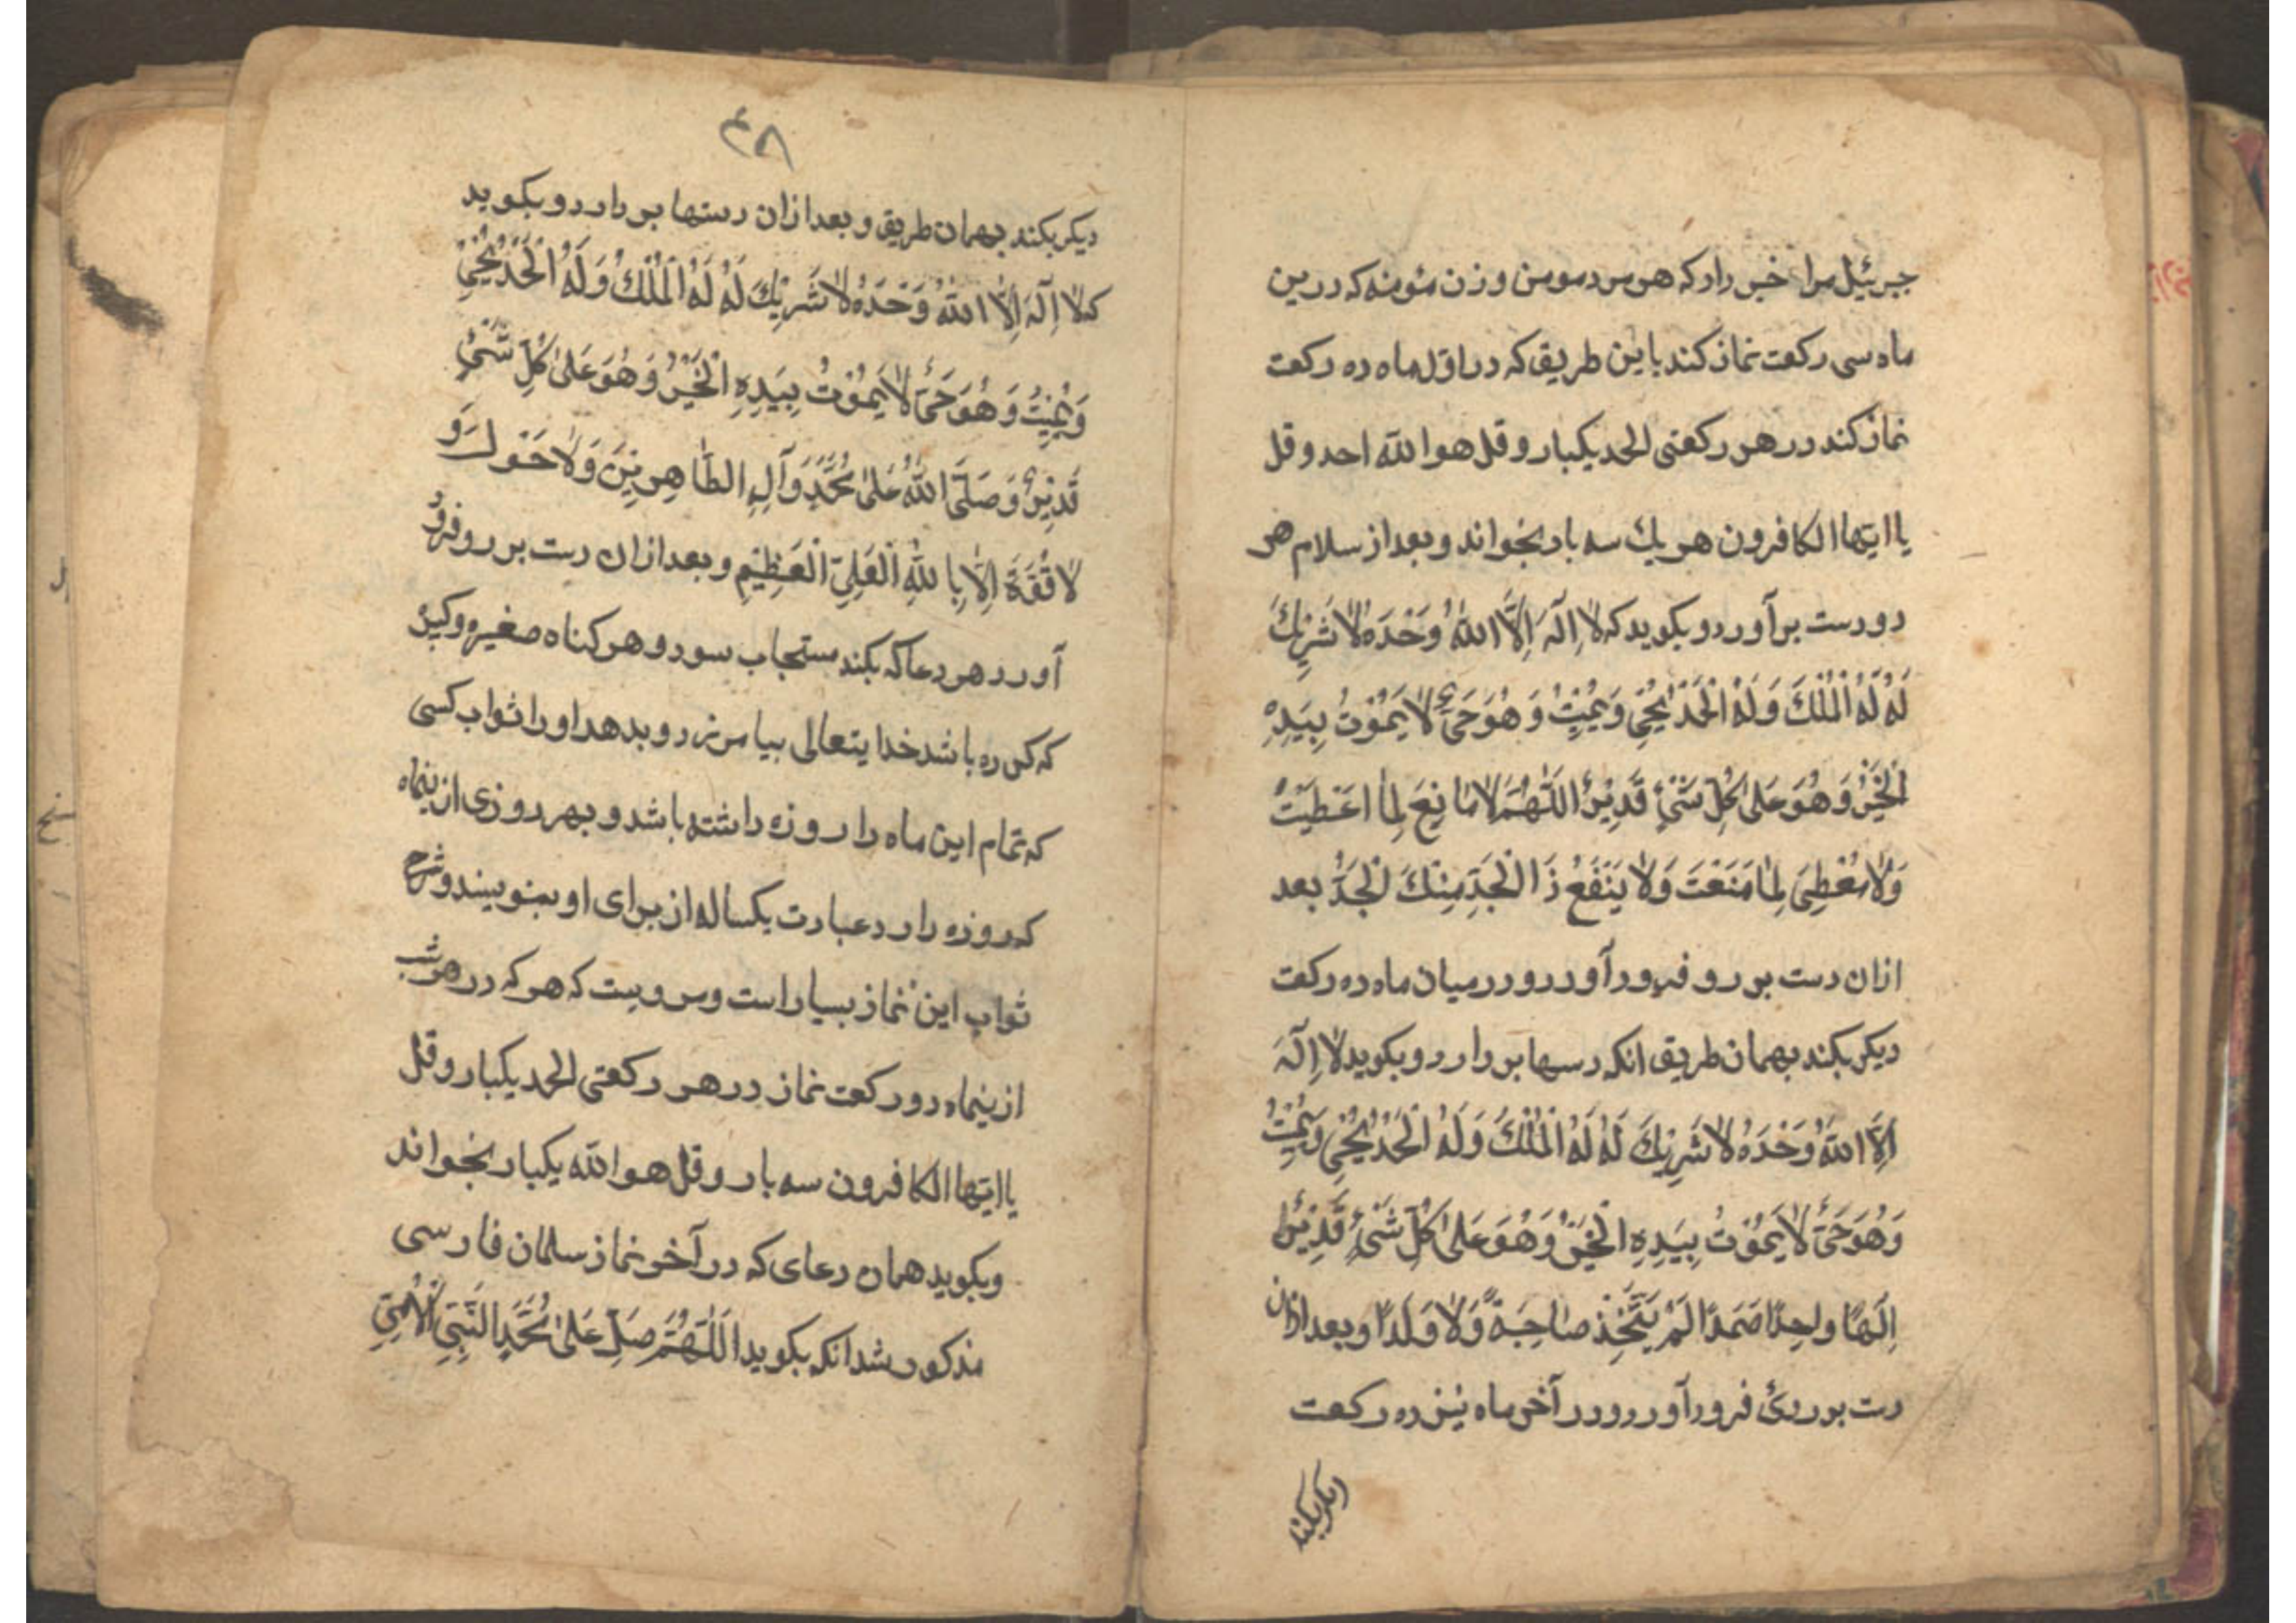 جبرئیل مرا خبر داد که هر مرد مومن و زن مئومنه که درین
ماه سی رکعت نماز کند باین طریق که در اوّل ماه ده رکعت
نماز کند در هر رکعتی الحمد یکبار و قل هو الله احد و قل
یا ایها الکافرون هر یك سه بار بخواند و بعد از سلام هر
دو دست بر آورد و بکوید که لَا اِلَهَ اِلَّا اللهُ وَحْدَهُ لَا شَرِیْكَ
لَهُ لَهُ الْمُلْكَ وَلَهُ الْحَمْدُ یُحْیِ وَیُمِیْتُ وَهُوَ حَیٌّ لَا یَمُوْتُ بِیَدِهِ
الْخَیْرُ وَهُوَ عَلَی کُلِّ شَیْءٍ قَدِیْرٌ اَللّٰهُمَّ لَا مَانِعَ لِمَا اَعْطَیْتَ
وَلَا مُعْطِیَ لِمَا مَنَعْتَ وَلَا یَنْفَعُ ذَا الْجَدِّ مِنْكَ الْجَدُّ بعد
ازان دست بر رو فرود آورد و در میان ماه ده رکعت
دیکر بکند بهمان طریق انکه دسها بر دارد و بکوید لَا اِلَهَ
اِلَّا اللهُ وَحْدَهُ لَا شَرِیْكَ لَهُ لَهُ الْمُلْكُ وَلَهُ الْحَمْدُ یُحْیِ وَیُمِیْتُ
وَهُوَ حَیٌّ لَا یَمُوْتُ بِیَدِهِ الْخَیْرُ وَهُوَ عَلَی کُلِّ شَیْءٍ قَدِیْرٌ
اِلَهًا واحِدًا صَمَدًا لَمْ یَتَّخِذْ صَاحِبَةً وَلَا وَلَدًا و بعد ازان
دت بر روی فرود آورد و در آخر ماه نیز ده رکعت
دیکر بکند
۴۸
دیکر بکند بهمان طریق و بعد ازان دستها بر دارد و بکوید
که لَا اِلَهَ اِلَّا اللهُ وَحْدَهُ لَا شَرِیْكَ لَهُ لَهُ الْمُلْكُ وَلَهُ الْحَمْدُ یُحْیِ
وَیُمِیْتُ وَهُوَ حَیٌّ لَا یَمُوْتُ بِیَدِهِ الْخَیْرُ وَهُوَ عَلَی کُلِّ شَیْءٍ
قَدِیْرٌ وَصَلَّی اللهُ عَلَی مُحَمَّدٍ وَآلِهِ الطَّاهِرِیْنَ وَلَا حَوْلَ وَ
لَا قُوَّةَ اِلَّا بِاللهِ الْعَلِیِّ الْعَظِیْمِ و بعد ازان دست بر رو فرو
آورد هر دعا که بکند مستجاب سود و هر کناه صغیره و کبیره
که کرده باشد خدایتعالی بیامرزد و بدهد او را ثواب کسی
که تمام این ماه را روزه داشته باشد و بهر روزی ازینماه
که روزه دارد عبارت یکساله از برای او بنویسند و شرح
ثواب این نماز بسیار است و مرویست که هر که در هر شب
ازینماه دو رکعت نماز در هر رکعتی الحمد یکبار و قل
یا ایها الکافرون سه بار و قل هو الله یکبار بخواند
و بکوید همان دعای که در آخر نماز سلمان فارسی
مذکور شد انکه بکوید اَللّٰهُمَّ صَلِّ عَلَی مُحَمَّدٍ النَّبِیِّ الْاُمِّیِّ